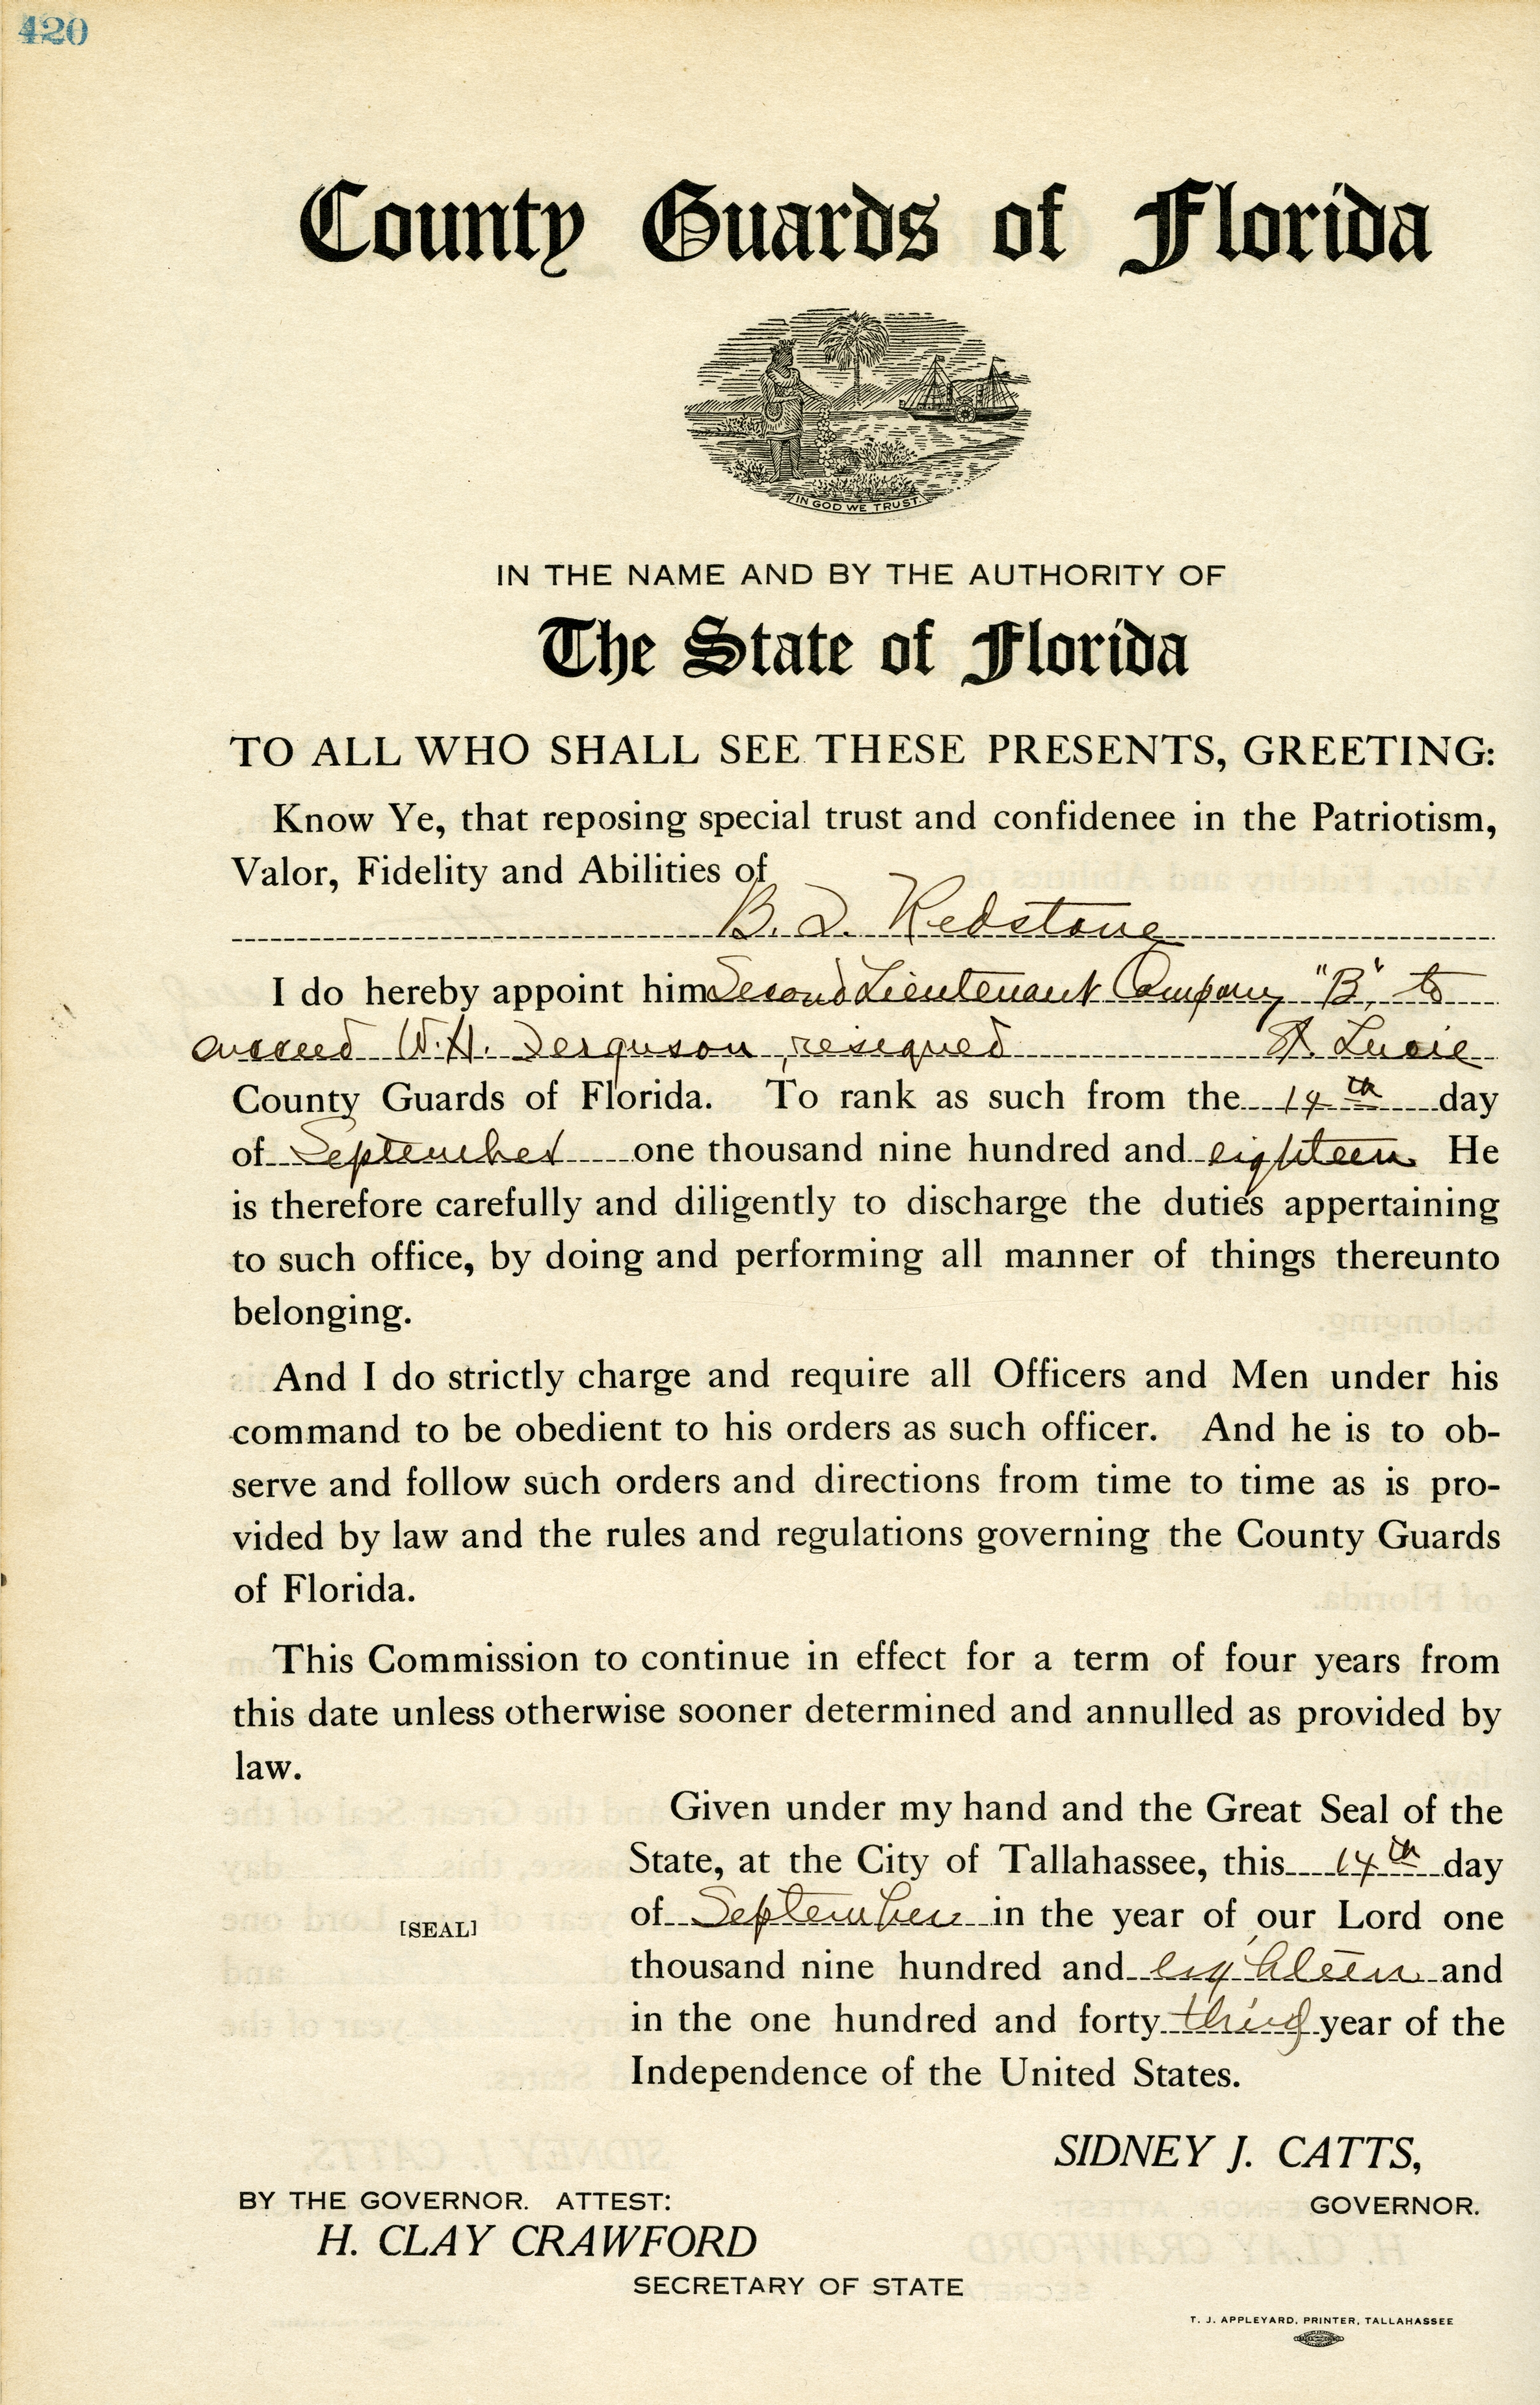 420
County Guards of Florida
IN GOD WE TRUST.
IN THE NAME AND BY THE AUTHORITY OF
The State of Florida
TO ALL WHO SHALL SEE THESE PRESENTS, GREETING:
Know Ye, that reposing special trust and confidenee in the Patriotism,
Valor, Fidelity and Abilities of
B. Redstone
I do hereby appoint him Second Lieutenant Company "B", to
succeed W. H. Ferguson, resigned St. Lucie
County Guards of Florida. To rank as such from the 14th day
of September one thousand nine hundred and eighteen He
is therefore carefully and diligently to discharge the duties appertaining
to such office, by doing and performing all manner of things thereunto
belonging.
And I do strictly charge and require all Officers and Men under his
command to be obedient to his orders as such officer. And he is to ob-
serve and follow such orders and directions from time to time as is pro-
vided by law and the rules and regulations governing the County Guards
of Florida.
This Commission to continue in effect for a term of four years from
this date unless otherwise sooner determined and annulled as provided by
law.
Given under my hand and the Great Seal of the
State, at the City of Tallahassee, this 14th day
of September in the year of our Lord one
[SEAL]
thousand nine hundred and eighteen and
in the one hundred and forty third year of the
Independence of the United States.
SIDNEY J. CATTS,
GOVERNOR.
BY THE GOVERNOR. ATTEST:
H. CLAY CRAWFORD
SECRETARY OF STATE
T. J. APPLEYARD, PRINTER, TALLAHASSEE